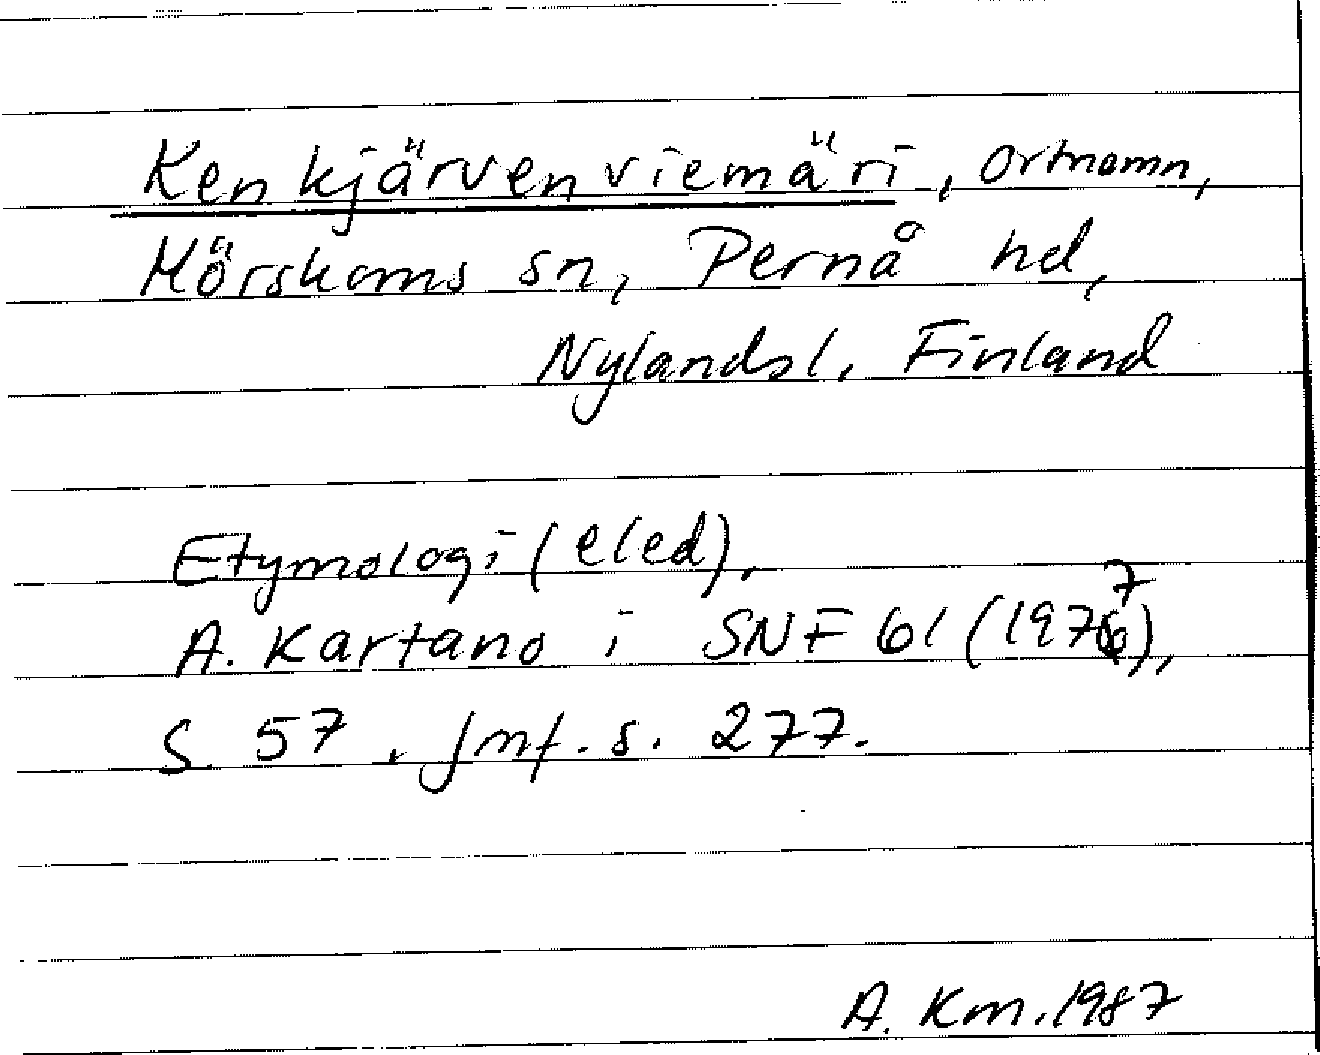 Kenkjärvenviemäri, ortnamn,
Mörskoms sn, Pernå hd,
Nylandsl, Finland
Etymologi (eled),
A. Kartano i SNF 61 (1977),
S. 57. Jmf. s. 277.
A. Km. 1987